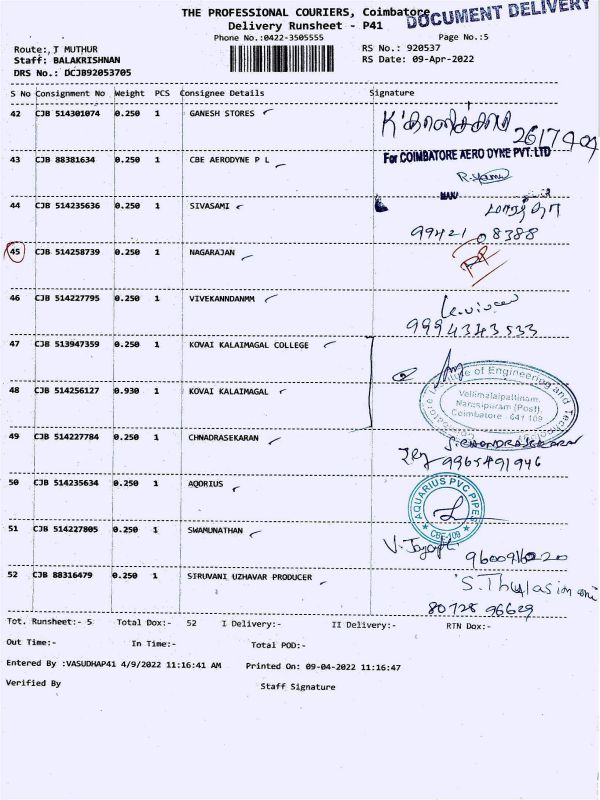 THE PROFESSIONAL COURIERS, Coimbatore
DOCUMENT DELIVERY
Delivery Runsheet - P41
Phone No.:0422-3505555
Page No.:5
Route:, T MUTHUR
RS No.: 920537
Staff: BALAKRISHNAN
RS Date: 09-Apr-2022
DRS No.: DCJB92053705
S No Consignment No Weight PCS Consignee Details Signature
42 CJB 514301074 0.250 1 GANESH STORES
43 CJB 88381634 0.250 1 CBE AERODYNE P L
For COIMBATORE AERO DYNE PVT. LTD
44 CJB 514235636 0.250 1 SIVASAMI
99421 08388
45 CJB 514258739 0.250 1 NAGARAJAN
46 CJB 514227795 0.250 1 VIVEKANNDANMM
9994343533
47 CJB 513947359 0.250 1 KOVAI KALAIMAGAL COLLEGE
48 CJB 514256127 0.930 1 KOVAI KALAIMAGAL
Coimbatore Institute of Engineering and Technology
Vellimalaipattinam,
Narasipuram (Post),
Coimbatore - 641 109
49 CJB 514227784 0.250 1 CHNADRASEKARAN
S. CHANDRASEKARAN
9965491946
50 CJB 514235634 0.250 1 AQORIUS
AQUARIUS PVC PIPES
CBE-109
51 CJB 514227805 0.250 1 SWAMUNATHAN
52 CJB 88316479 0.250 1 SIRUVANI UZHAVAR PRODUCER
80728 96629
Tot. Runsheet:- 5 Total Dox:- 52 I Delivery:- II Delivery:- RTN Dox:-
Out Time:- In Time:- Total POD:-
Entered By :VASUDHAP41 4/9/2022 11:16:41 AM Printed On: 09-04-2022 11:16:47
Verified By Staff Signature